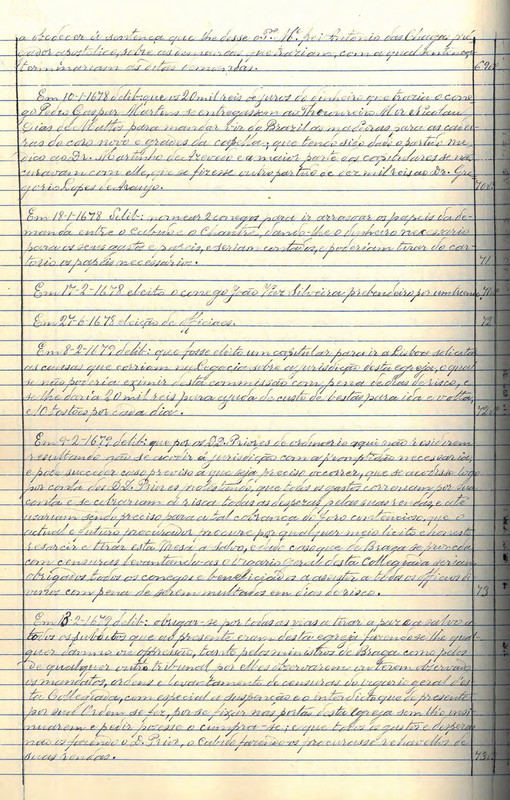 a obedecer á sentença que lhe desse o P.e M.e frei Antonio das Chagas, pré
gador apostolico, sobre as demandas que traziam, com a qual sentença
terminariam as ditas demandas. 69
Em 10-1-1678 delib: que os 20 mil reis de juros do dinheiro que trazia o cone
go Pedro Gaspar Martins se entregassem ao Thesoureiro Mór Nicolau
Dias de Mattos para mandar vir do Brazil as madeiras para as cadei
ras do coro novo e grades da capella; que tendo sido dado o partido de
dias ao Dr. Martinho de e a maior parte dos capitulares se
curavam com elle, que se fizesse outro partido de dez mil reis ao Dr. Gre
gorio Lopes de Araujo. 70
Em 18-1-1678 Delib: nomear 2 conegos para ir arrasoar os papeis da de
manda entre o Cabido e o Chantre, dando-lhe o dinheiro necessario
para os seus gastos e papeis, e seriam contados, e poderiam tirar do car
torio os papeis necessários. 71
Em 17-2-1678 eleito o conego João Silveira prebendeiro por um triennio. 71
Em 27-6-1678 eleição de officiaes. 72
Em 8-2-1679 delib: que fosse eleito um capitular para ir a Lisboa solicitar
as causas que corriam na Legacia sobre a jurisdicção desta egreja, o qual
se não poderia eximir desta commissão com pena de dias de risco, e
se lhe daria 20 mil reis para ajuda de custo de bestas para ida e volta,
e 10 tostões por cada dia. 72
Em 9-2-1679 delib: que por os D.D. Priores de ordinario aqui não residirem
resultando não se acudir á jurisdicção com a promptidão necessaria,
e pode succeder caso preciso a que seja preciso occorrer, que se acudisse logo
por conta dos D.D. Priores protestando, que todos os gastos corressem por sua
conta e se cobrariam á risca todas as despezas pelas suas rendas, e até
usariam sendo preciso para a tal cobrança do fôro contencioso, que o
actual e futuro procurador procure por qualquer meio licito e honesto
resarcir e tirar esta Mesa a salvo, e em caso que de Braga se proceda
com censuras levantando-as o vigario geral desta Collegiada seriam
obrigados todos os conegos e beneficiados a assistir a todos os officios di
vinos com pena de serem multados em dias de risco. 73
Em 13-2-1679 delib: obrigar-se por todas as vias a tirar a paz e a salvo a
todos os subditos que ao presente eram desta egreja fazendo-se-lhe qual
quer damno ou oppressão, tanto pelos ministros de Braga como pelos
de qualquer outro tribunal por elles observarem ou terem observado
os mandatos, ordens e levantamento de censuras do vigario geral des
ta Collegiada, com especial a suspenção e o interdicto que de presente
por sua Ordem se fez, por se fixar nas portas desta egreja sem lhe insi
nuarem e pedir pozesse o cumpra-se; e que todos os gastos e despezas
não os fazendo o D. Prior, o Cabido fazendo-os procurasse rehavel-os de
suas rendas. 73